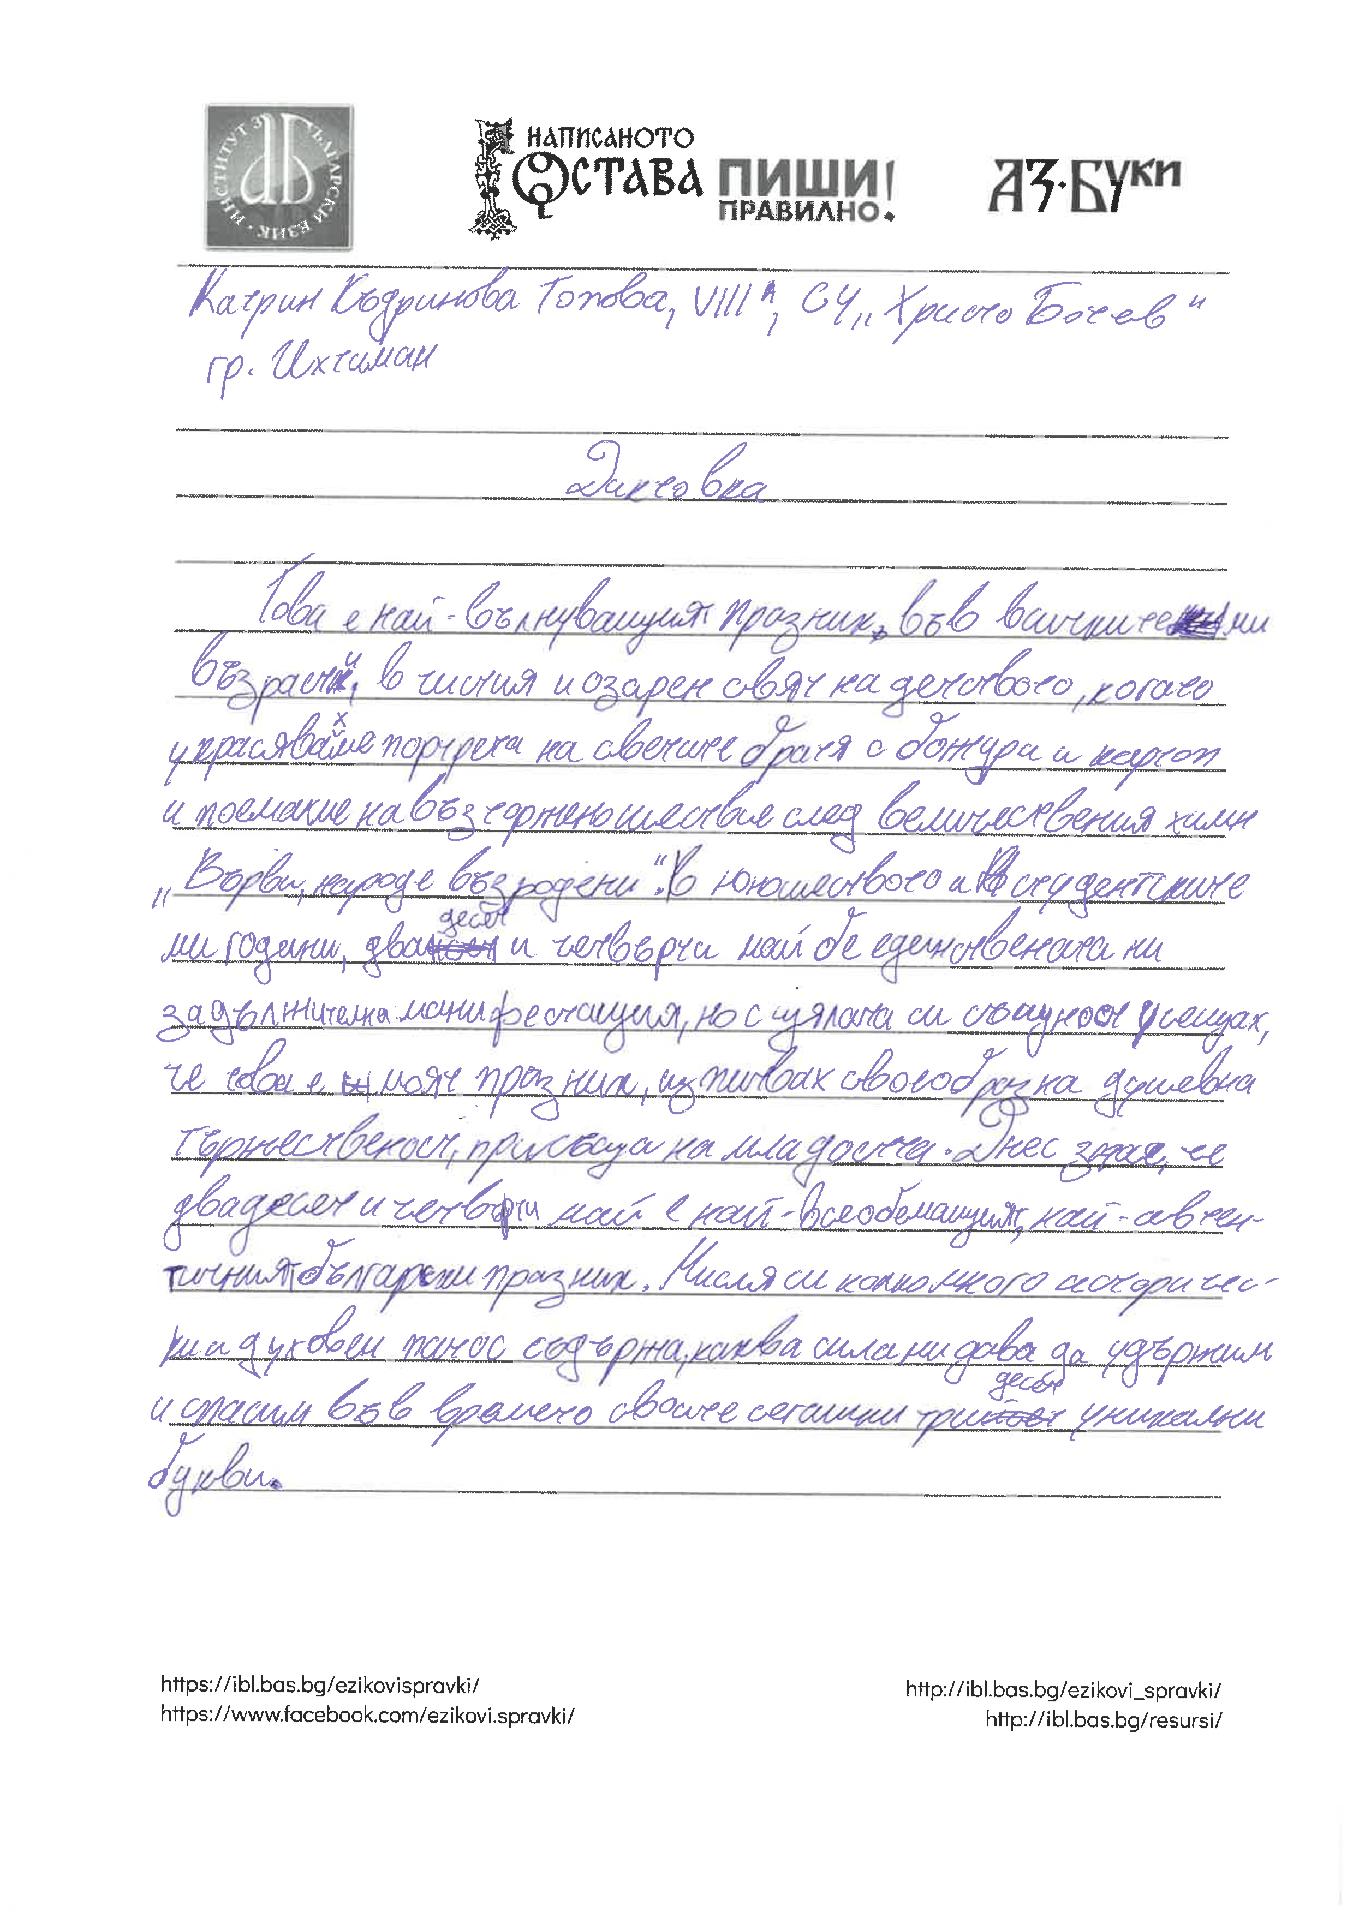 ИНСТИТУТ ЗА БЪЛГАРСКИ ЕЗИК
НАПИСАНОТО
ОСТАВА ПИШИ
ПРАВИЛНО!
АЗ·БУКИ
Катрин Къдринова Попова, VIII А, СУ „Христо Ботев"
гр. Ихтиман
Диктовка
Това е най-вълнуващият празник, във всичките ми
възрасти, в чистия и озарен свят на детството, когато
украсявахме портрета на светите братя с божури и картоп
и поемахме на възторженошествие след величествения химн
„Върви, народе възродени". В юношеството и в студентските
ми години, двадесет и четвърти май бе единствената ни
задължителна манифестация, но с цялата си същност усещах,
че това е моят празник, изпитвах своеобразна душевна
тържественост, присъща на младостта. Днес зная, че
двадесет и четвърти май е най-всеобемащият, най-автен-
тичният български празник. Мисля си колко много историчес-
ки и духовен патос съдържа, каква сила ни дава да удържим
и спасим във времето своите сегашни тридесет уникални
букви.
https://ibl.bas.bg/ezikovispravki/
https://www.facebook.com/ezikovi.spravki/
http://ibl.bas.bg/ezikovi_spravki/
http://ibl.bas.bg/resursi/